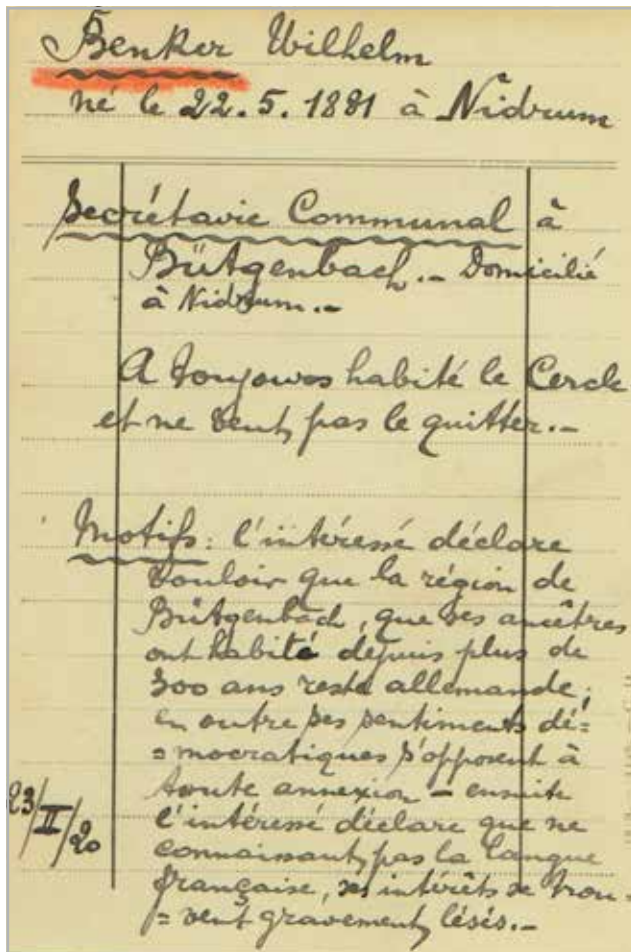 Benker Wilhelm
né le 22.5.1881 à Nidrum
Secrétaire Communal à
Bütgenbach.- Domicilié
à Nidrum.-
A toujours habité le Cercle
et ne veut pas le quitter.-
Motifs: l'intéressé déclare
vouloir que la région de
Bütgenbach, que ses ancêtres
ont habité depuis plus de
300 ans reste allemande;
en outre ses sentiments dé=
=mocratiques s'opposent à
toute annexion - ensuite
23/II/20
l'intéressé déclare que ne
connaissant pas la langue
française, ses intérêts se trou-
=vent gravement lésés.-